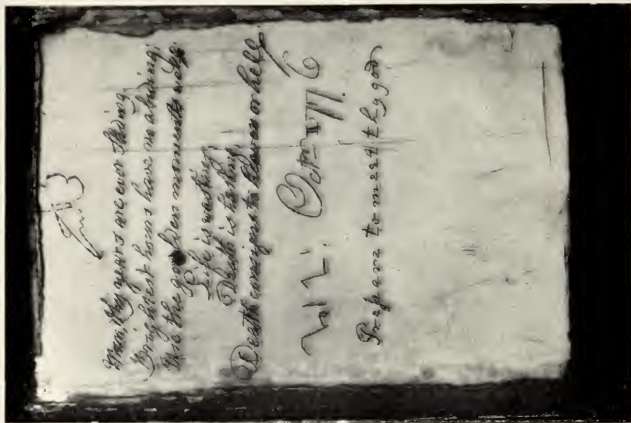 Man thy years are ever sliding,
Brightest hours have no abiding;
Use the golden moments well.
Life is wasting
Death is hasting
Death consigns to heaven or hell.
Prepare to meet thy god